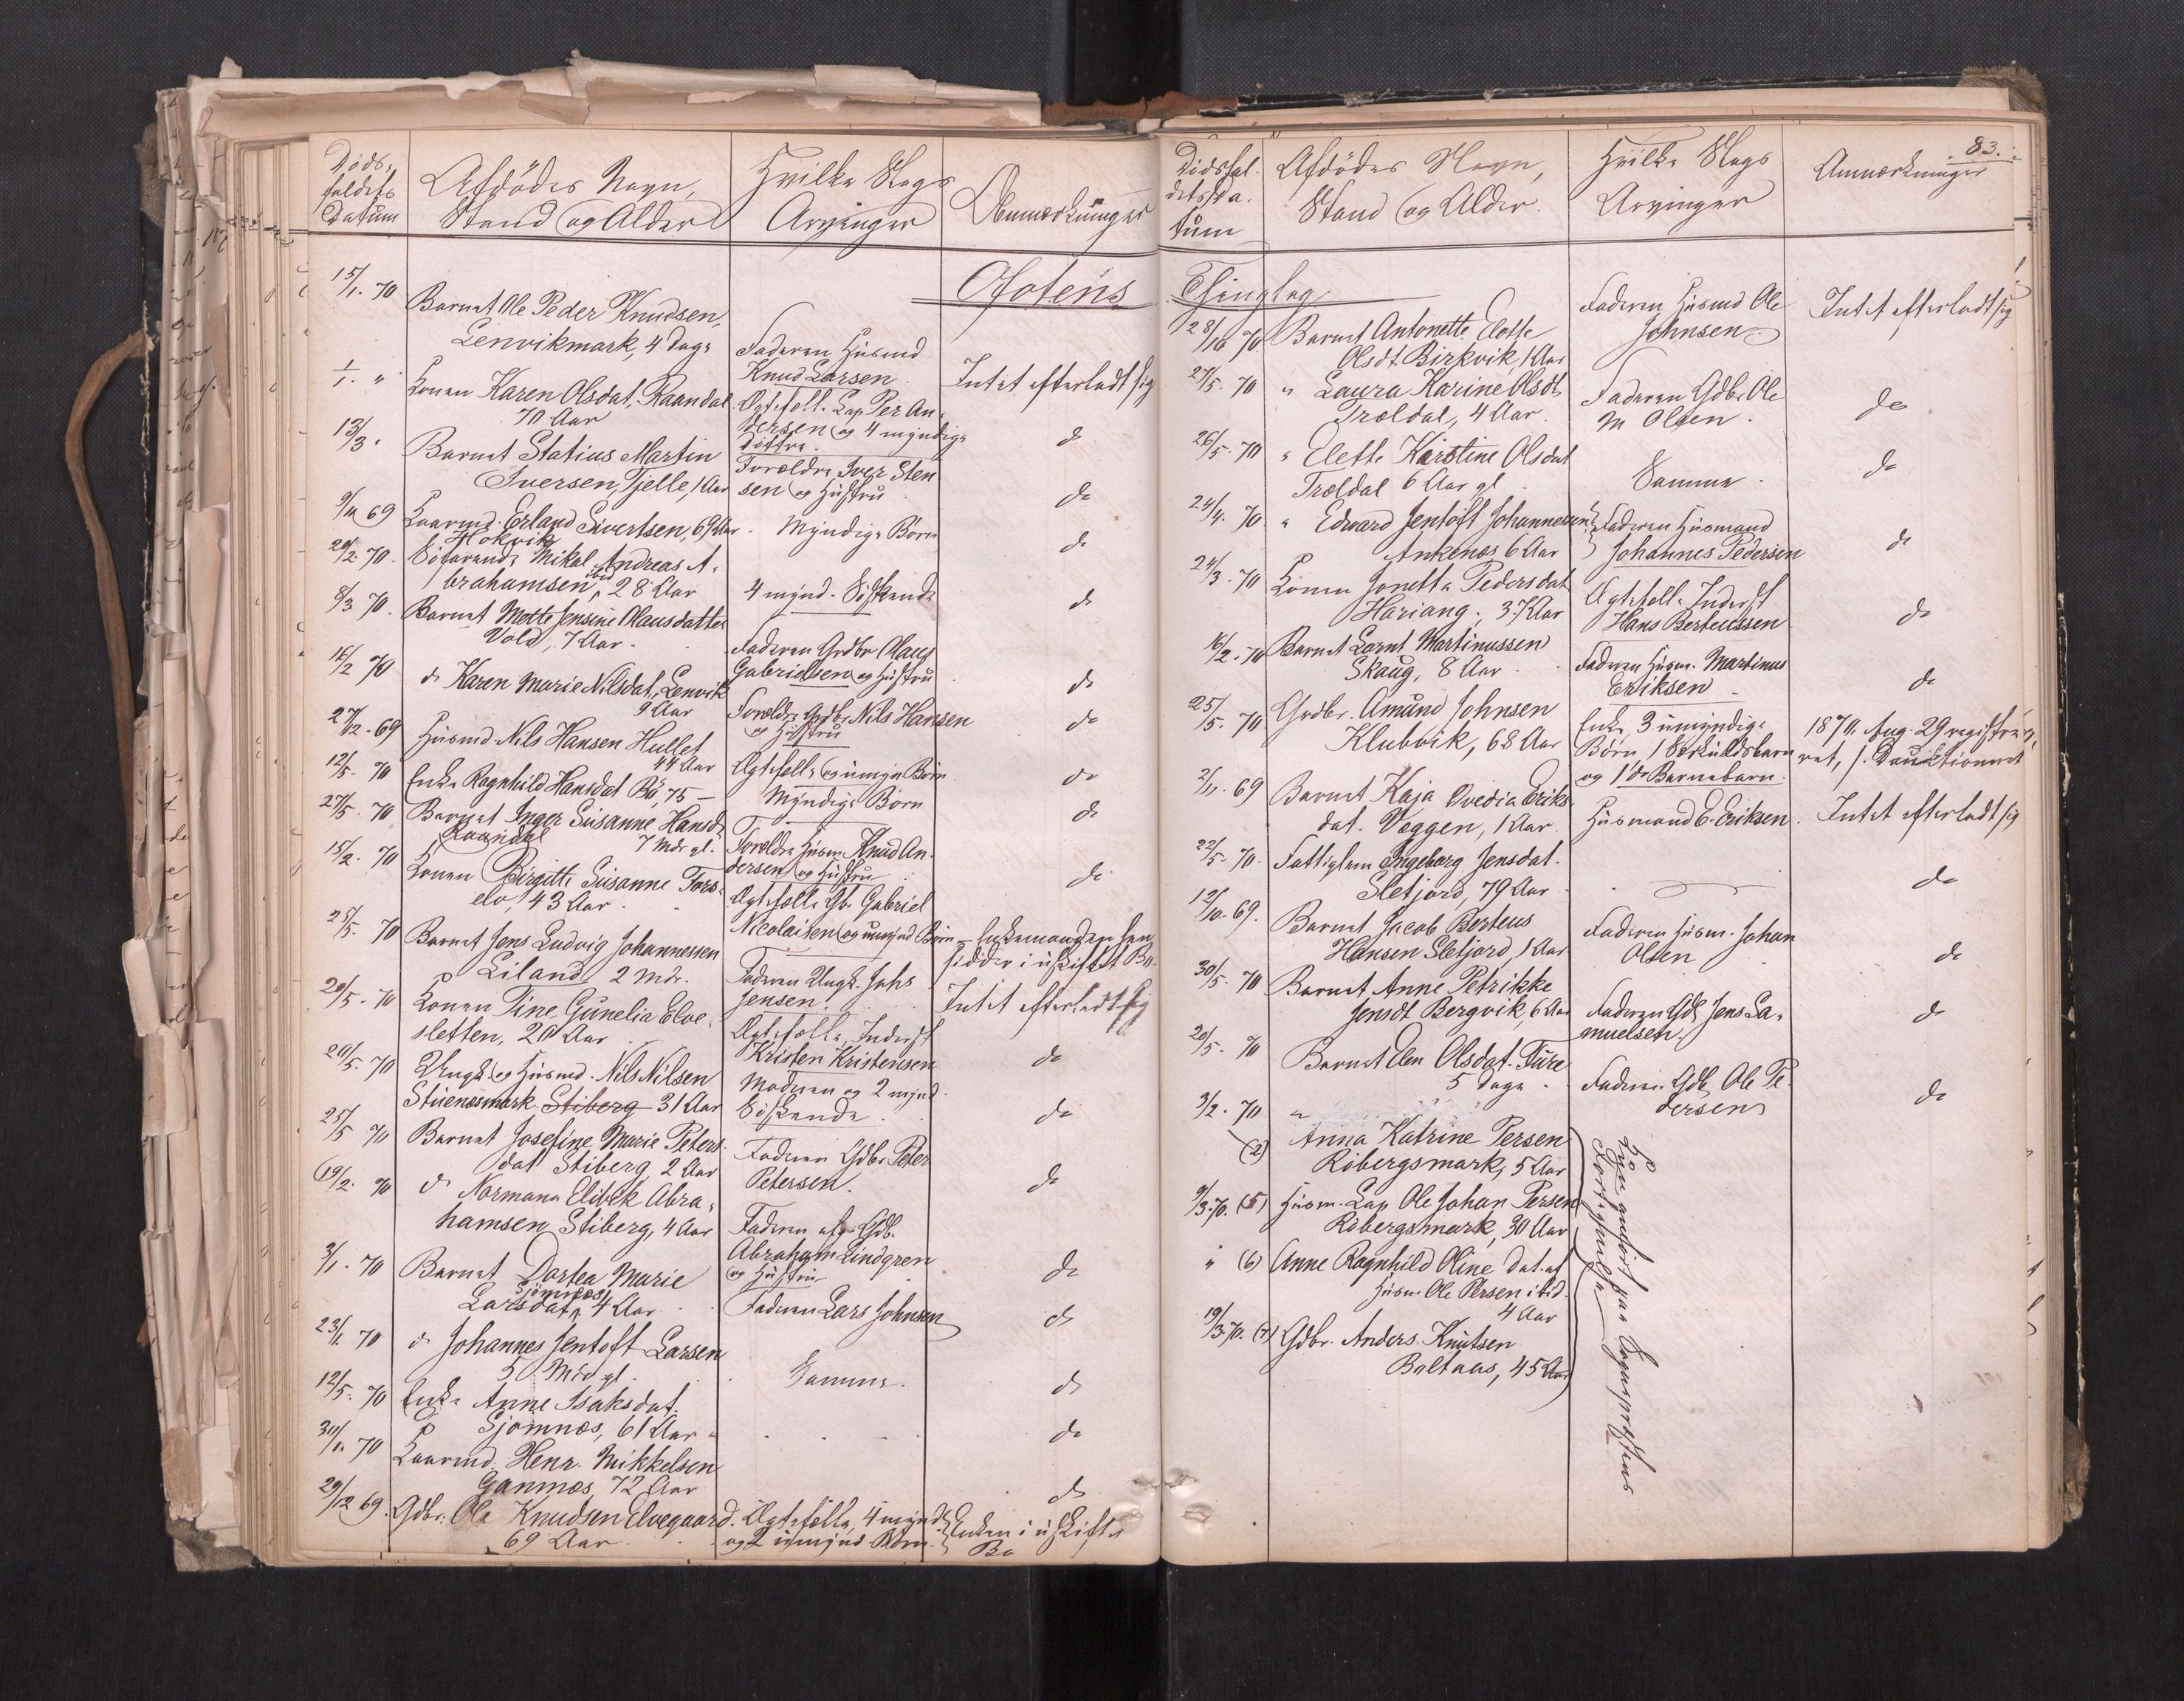 Døds-
faldets
Datum
Afdødes Navn,
Stand og Alder
Hvilke Slags
Arvinger
Anmærkninger
Ofotens
15/1. 70
Barnet Ole Peder Knudsen,
Lenvikmark, 4 Dage
Faderen Husmd
Knud Larsen
Intet efterladt sig
1/1. "
Konen Karen Olsdat, Raandal
70 Aar
Ægtefælle Lap Per An-
dersen og 4 myndige
Døttre.
d
13/3 "
Barnet Statius Martin
Iversen, Tjelle, 1 Aar
Forældre Iver Sten
sen og Hustru
do
9/11 69
Kaarmd. Erland Sivertsen, 69 Aar
Hokvik
Myndige Børn
do
20/2. 70.
Søfarende Mikal Andreas A-
brahamsen, ibd 28 Aar
4 mynd. Sødskende
do
8/3 70.
Barnet Mette Jensine Olausdatter
Vold, 7 Aar.
Faderen Grdbr Olaus
Gabrielsen og Hustru
do
16/2 70
do Karen Marie Nilsdat, Lenvik
9 Aar
Forældre Grdbr Nils Hansen
og Hustru
do
27/12. 69
Husmd Nils Hansen Hullet
44 Aar
Ægtefælle og umyn Børn
do
12/5. 70
Enke Ragnhild Hansdat Bø, 75 —
Myndige Børn
do
27/5. 70
Barnet Inger Susanne Hansd.
Raandal 7 Mdr gl.
Forældre Husm Knud An-
dersen og Hustru
do
15/2. 70
Konen Birgitte Susanne Fors-
elv, 43 Aar.
Ægtefælle Gb. Gabriel
Nicolaisen og umynd Børn
Enkemanden hen
sidder i uskiftet Bo.
25/5. 70
Barnet Jens Ludvig Johannessen
Liland, 2 Mdr.
Faderen Ungk. Johs
Jensen.
Intet efterladt sig
20/5. 70
Konen Tine Gunelia Elve-
sletten, 20 Aar
Ægtefælle, Inderst
Kristen Kristensen
do
20/5. 70
Ungk. og Husmd. Nils Nilsen
Stuenesmark Stiberg 31 Aar
Moderen og 2 mynd.
Sødskende.
do
25/5 70
Barnet Josefine Marie Peters-
dat Stiberg, 2 Aar
Faderen Gdbr. Peter
Petersen.
do
19/2. 70
do Normana Elibek Abra-
hamsen Stiberg, 4 Aar
Faderen afg. Gdb.
Abraham Lindgren
og Hustru
do
3/1. 70
Barnet Dortea Marie
Larsdat, Sjomnæs, 4 Aar
Faderen Lars Johnsen
do
23/1. 70
do Johannes Jentoft Larsen
5 Mdr gl.
Samme.
do
12/5. 70
Enke Anne Isaksdat.
Sjomnæs, 61 Aar
do
30/1. 70
Kaarmd. Henr. Mikkelsen
Ganmæs, 72 Aar
do
29/12 69.
Gdbr. Ole Knudsen Elvegaard.
69 Aar.
Ægtefælle, 4 mynd.
og 2 umynd. Børn.
Enken i uskiftet
Bo
83.
Dødsfal-
dets Da-
tum
Afdødes Navn,
Stand og Alder.
Hvilke Slags
Arvinger
Anmærkninger
Thinglag
28/10 70.
Barnet Antonette Elotte
Olsdt. Birkvik, 1 Aar
Faderen Husmd Ole
Johnsen.
Intet efterladt sig
27/5. 70
" Laura Karine Olsdt,
Trældal, 4 Aar.
Faderen Gdbr. Ole
M Olsen.
do
26/5. 70
" Elette Kirstine Olsdat
Trældal 6 Aar gl.
Samme.
do
24/4. 70
" Edvard Jentoft Johannessen
Ankenæs 6 Aar
Faderen Husmand
Johannes Pedersen
do
24/3. 70
Konen Jonetta Pedersdat
Hariang. 37 Aar
Ægtefælle Inderst
Hans Berteussen
do
16/2. 70
Barnet Lornt Martinussen
Skaug, 8 Aar.
Faderen Husm. Martinus
Eriksen
do
25/5. 70
Grdbr. Amund Johnsen
Klubvik, 68 Aar
Enke, 3 umyndige
Børn 1 Særkuldsbarn
og 1 do Barnebarn.
1870. Aug. 29 registre-
ret,
2/11. 69
Barnet Kaja Ovedia Eriks
dat. Veggen, 1 Aar.
Husmand E. Eriksen.
Intet efterladt sig
22/5. 70.
Fattiglem Ingeborg Jensdat.
Sletjord, 79 Aar
do
12/10. 69.
Barnet Jacob Berteus
Hansen Sletjord, 1 Aar
Faderen Husm. Johan
Olsen
do
30/5. 70
Barnet Anne Petrikke
Jensdt Bergvik, 6 Aar
Faderen Gdb Jens Sa-
muelsen.
do
20/5. 70
Barnet Elen Olsdat. Fure
5 Dage.
Faderen Gdb. Ole Pe-
dersen
do
3/2. 70
(2)
"
Anna Katrine Persen
Røbergsmark, 5 Aar
9/3. 70. (5)
Husm. Lap Ole Johan Persen
Røbergsmark, 30 Aar
" (6)
Anne Ragnhild Oline Dat. af
Husm. Ole Persen ibid.
4 Aar
19/3. 70. (7)
Gdbr. Anders Knutsen
Boltaas, 45 Aar
Fortegnelse